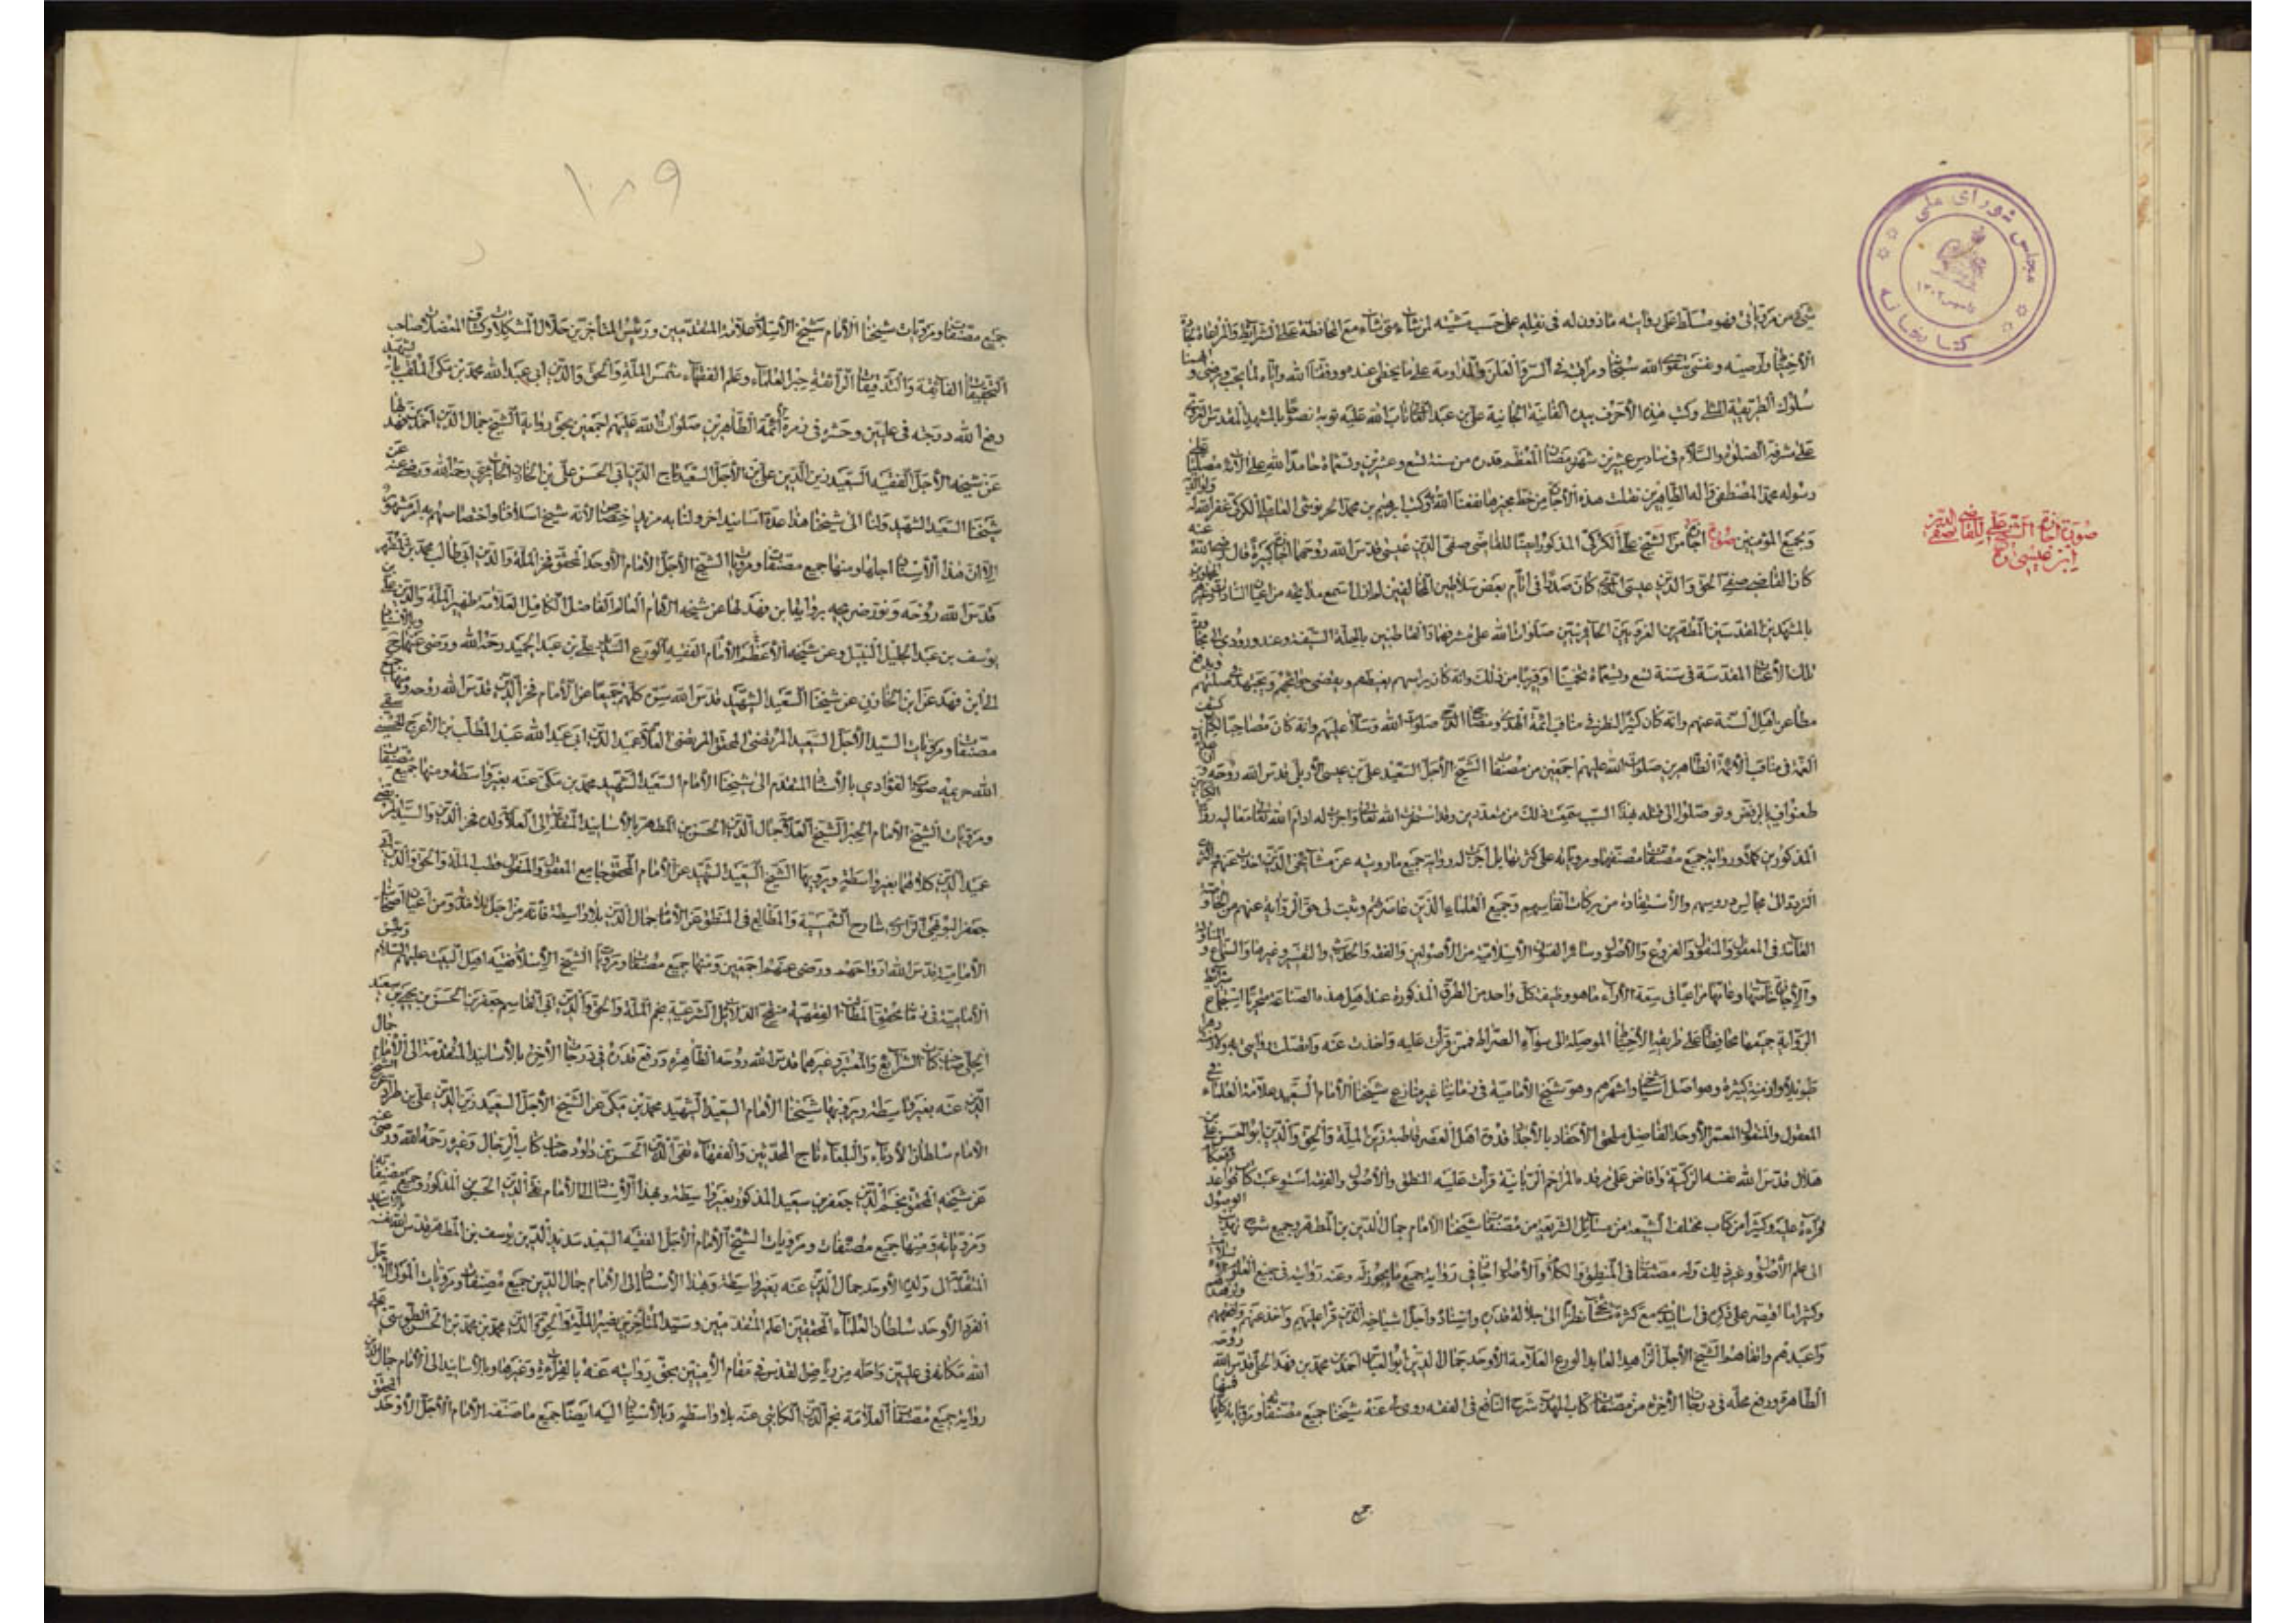 شيء من مروياتي فهو مسلط على روايته مأذون له في نقله على حسب مشيته لمن شاء متى شاء مع المحافظة على الشرائط
الاحتياط واوصيه ونفسي بتقوى الله سبحانه ومراقبته في السر والعلن والمداومة على ما يحظى عنده ووفقنا الله واياه لما يحب ويرضى
سلوك الطريقة المثلى وكتب هذه الأحرف بيده الفانية الجانية علي بن عبد العالي تاب الله عليه توبة نصوحا بالمشهد المقدس الغروي
على مشرفه الصلوة والسلام في سادس عشرين شهر رمضان المعظم قدره من سنة تسع وعشرين وتسعمائة حامدا لله على آلائه مصليا على
رسوله محمد المصطفى وآله الطاهرين نقلت هذه الأجازة من خط مجيزها نفعنا الله وكتب ابرهيم بن محمد الحرفوشي العاملي الكركي غفر الله له ولوالديه
ولجميع المؤمنين صورة اجازة من الشيخ علي الكركي المذكور ايضا للقاضي صفي الدين عيسى قدس الله روحهما قال رضي الله عنه
كان القاضي صفي الحق والدين عيسى كان صدرا في ايام بعض سلاطين المخالفين
بالمشهدين المقدسين المطهرين الغروي والحائري صلوات الله على مشرفهما والقاطنين بالحلة السيفية وعند ورودي الى
تلك الأعتاب المقدسة في سنة تسع وتسعمائة تخمينا او قريبا من ذلك وانه كان يراسهم بغبطهم ويقضي حوائجهم
مطاعن اهل السنة عنهم وانه كان كثير النظر في مناقب ائمة الهدى ومصابيح الدجى صلوات الله وسلامه عليهم وانه كان مصاحبا لكتاب كشف
الغمة في مناقب الأئمة الطاهرين صلوات الله عليهم اجمعين من مصنفات الشيخ الأجل السعيد علي بن عيسى الأربلي قدس الله روحه
طعنوا فيه بالرفض وتوصلوا الى قتله بهذا السبب سمعت ذلك من متعددين وقد استخرت الله تعالى واجزت له ادام الله تعالى معاليه رواية
المذكورين كالمذكور رواية جميع مصنفات مصنفيها ومروياته على كثرتها بل اجزت له رواية جميع ما رويته عن مشايخي الذين اخذت عنهم
التردد الى مجالس دروسهم والأستفادة من بركات انفاسهم وجميع العلماء الذين عاصرتهم وثبت لي حق الرواية عنهم من
العائد في المعقول والمنقول والفروع والأصول وسائر الفنون الأسلامية من الأصولين والفقه والحديث والتفسير وغيرها والسماع و
والأجازة خاصتها وعامتها مراعيا في سعة الأداء ما هو وظيفة كل واحد من الطرق المذكورة عند اهل هذه الصناعة متحريا استجماع شرائط
الرواية جميعها محافظا على طريق الأحتياط الموصلة الى سواء الصراط فممن قرأت عليه واخذت عنه واتصلت روايتي به
طويلا وازمنة كثيرة وهو اجل اشياخي واشهرهم وهو شيخ الأمامية في زماننا غير منازع شيخنا الأمام السعيد علامة العلماء في
المعقول والمنقول المعمر الأوحد الفاضل ملحق الأحفاد بالأجداد قدوة اهل العصر قاطبة زين الملة والحق والدين ابو الحسن علي بن
هلال قدس الله نفسه الزكية وافاض على مرقده المراحم الربانية قرأت عليه المنطق والأصول والفقه استوعبت كتاب قواعد
قراءة عليه وكثيرا من كتاب مختلف الشيعة من مسائل الشريعة من مصنفات شيخنا الامام جمال الدين بن المطهر وجميع شرح تهذيب الوصول
الى علم الأصول وغير ذلك وله مصنفات في المنطق والكلام والأصول اجازني رواية جميع ما يجوز له وعنه روايته في جميع العلوم
وكثيرا ما اقتصر على ذكره في اسانيدي مع كثرة مشايخنا نظرا الى جلالة قدره واسناده واجل اشياخه الذين قرأ عليهم واخذ عنهم وافقههم
واعبدهم واتقاهم الشيخ الأجل الزاهد العابد الورع العلامة الأوحد جمال الدين ابو العباس احمد بن محمد بن فهد الحلي قدس الله روحه
الطاهرة ورفع محله في درجات الآخرة من مصنفاته كتاب المهذب شرح النافع في الفقه روى له عنه شيخنا جميع مصنفاته ومروياته
جميع
صورة اجازة الشيخ علي للقاضي صفي الدين
ابن عيسى رح
مجلس شورای ملی
کتابخانه
١٠٨٩
جميع مصنفات ومرويات شيخنا الأمام شيخ الأسلام علامة المتقدمين ورئيس المتأخرين حلال المشكلات وكشاف المعضلات صاحب
التحقيقات الفائقة والتدقيقات الرائقة حبر العلماء وعلم الفقهاء شمس الملة والحق والدين ابي عبد الله محمد بن مكي الملقب بالشهيد
رفع الله درجته في عليين وحشره في زمرة أئمة الطاهرين صلوات الله عليهم اجمعين بحق رواية الشيخ جمال الدين احمد بن فهد لها
عن شيخه الأجل الفقيه السعيد زين الدين علي بن الأجل السعيد تاج الدين ابي الحسن علي بن الخازن الحائري رحمه الله ورضي عنه عن
شيخنا السعيد الشهيد ولنا الى شيخنا هذا عدة اسانيد اخر ولنا به مزيد اختصاص لأنه شيخ اسلافنا واختصاصهم به امر مشهور
الا ان هذا الأسناد اجلها ومنها جميع مصنفات ومرويات الشيخ الأجل الأمام الأوحد المحقق فخر الملة والدين ابي طالب محمد بن المطهر
قدس الله روحه ونور ضريحه برواية ابن فهد لها عن شيخه الأمام العالم الفاضل الكامل العلامة ظهير الملة والدين علي بن
يوسف بن عبد الجليل النيلي وعن شيخه الأعظم الأمام الفقيه الورع السيد علي بن عبد الحميد رحمه الله ورضي عنه وبالأسناد
الى ابن فهد عن ابن الخازن عن شيخنا السعيد الشهيد قدس الله سره كلهم جميعا عن الأمام فخر الدين قدس الله روحه ومنها جميع
مصنفات ومرويات السيد الأجل السعيد المرتضى المحقق المرتضى العلامة عميد الدين ابي عبد الله عبد المطلب بن الأعرج الحسيني سقى
الله ضريحه صوب الغوادي بالأسناد المتقدم الى شيخنا الأمام السعيد الشهيد محمد بن مكي عنه بغير واسطة ومنها جميع مصنفات
ومرويات الشيخ الأمام الحبر الشيخ العلامة جمال الدين الحسن بن المطهر بالأسانيد المتقدمة الى العلامة ولده فخر الدين والسيد
عميد الدين كلاهما بغير واسطة ويرويها الشيخ السعيد الشهيد عن الأمام المحقق جامع المعقول والمنقول قطب الملة والحق والدين ابي
جعفر البويهي الرازي شارح الشمسية والمطالع في المنطق عن الأمام جمال الدين بلا واسطة فانه من اجل تلامذته ومن اعيان اصحابنا
الأمامية قدس الله ارواحهم ورضي عنهم اجمعين ومنها جميع مصنفات ومرويات الشيخ الأسلام فقيه اهل البيت عليهم السلام ورئيس
الأمامية في زمانه محقق المطالب الفقهية منقح الدلائل الشرعية نجم الملة والحق والدين ابي القاسم جعفر بن الحسن بن يحيى بن سعيد
الحلي صاحب كتاب الشرايع والمعتبر وغيرهما قدس الله روحه الطاهرة ورفع قدره في درجات الآخرة بالأسانيد المتقدمة الى الأمام جمال
الدين عنه بغير واسطة ويرويها شيخنا الأمام السعيد الشهيد محمد بن مكي عن الشيخ الأجل السعيد زين الدين علي بن طراد عن الشيخ
الأمام سلطان الأدباء والبلغاء تاج المحدثين والفقهاء تقي الدين الحسن بن داود صاحب كتاب الرجال وغيره رحمه الله ورضي عنه
عن شيخه المحقق نجم الدين جعفر بن سعيد المذكور بغير واسطة وبهذا الأسناد الى الأمام تقي الدين الحسن المذكور وجميع مصنفاته
ومروياته ومنها جميع مصنفات ومرويات الشيخ الأمام الأجل الفقيه السعيد سديد الدين يوسف بن المطهر قدس الله نفسه بالأسانيد
المتقدمة الى ولده الأوحد جمال الدين عنه بغير واسطة وبهذا الأسناد الى الأمام جمال الدين جميع مصنفات ومرويات المولى الأجل
الفرد الأوحد سلطان العلماء المحققين اعلم المتقدمين وسيد المتأخرين نصير الملة والحق والدين محمد بن محمد بن الحسن الطوسي
الله مكانه في عليين واحله من رياض القدس في مقام الأمين بحق روايته عنه بالقراءة وغيرها وبالأسانيد الى الأمام جمال الدين
رواية جميع مصنفات العلامة نجم الدين الكاتبي عنه بلا واسطة وبالأسناد اليه ايضا جميع ما صنفه الأمام الأجل الأوحد المحقق